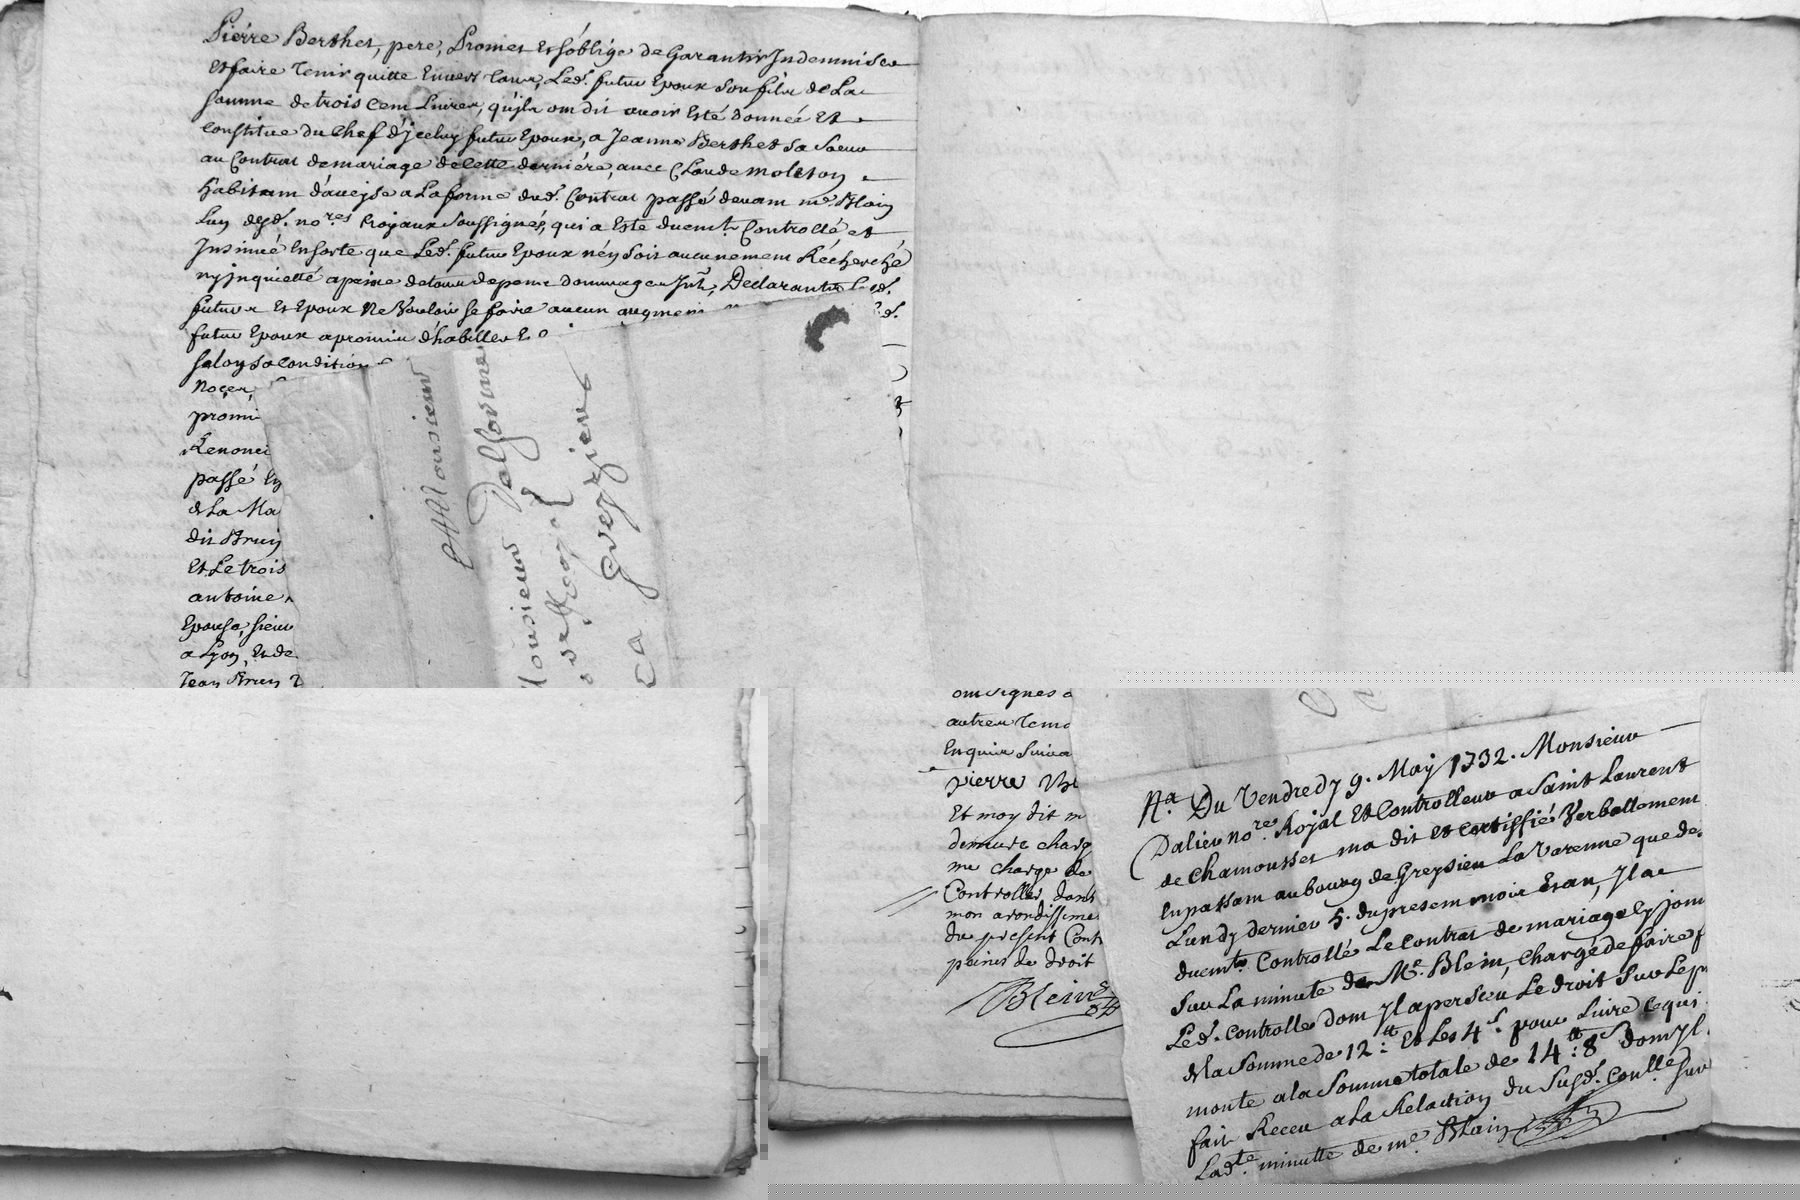 Pierre Berthet, pere, Promet Et s'oblige de Garantir Indemniser
Et faire Tenir quitte Envers Tous, Led. futur Epoux son fils de La
somme de trois Cent Livres, qu'ils ont dit avoir Esté donnée Et
Constitue du Chef d'jceluy futur Epoux, a Jeanne Berthet sa Soeur
au Contrat de mariage de Cette derniére, avec Claude moleton
habitant d'aveyse a La forme dud. Contrat passé devant me. Blain
L'un desd. no.res Royaux soussignés, qui a Esté duemt. Controllé et
Insinué En sorte que Led. futur Epoux n'en soit aucunement Récherché
ny jnquietté a peine de tous depens dommages Jnts, Declarants Lesd.
futurs Et Epoux Ne Vouloir se faire aucun augment
futur Epoux a promis d'habiller
selon sa Condition
Noces,
promi
Renonci
passé En
de La Ma
dit Brun
Et Le trois
antoine
Epouse, sieur
a Lyon, Et de
Jean Brun
A Monsieur
Monsieur Dalgorine
ca Grezieu
ont signés a
autres Temo
Enquis suiva
pierre Be
Et moy dit m
demure charg
me charge de
Controller dans
mon arondisseme
du present Cont
peines de droit
Blein
Na. Du Vendredy 9. May 1732. Monsieur
Dalier no.re Royal Et Controlleur a Saint Laurent
de Chamousset ma dit et certiffié Verballement
En passant au bourg de Gresieu La Varenne que de
Lundy dernier 5. du present mois Et an, Jl a
duemt. Controllé Le Contrat de mariage Cy joint
Sur La minute de Me. Blein, Chargé de faire f
Led. Controlle dont Jl a perSeu Le droit Sur Le p
de la Somme de 12tt. Et Les 4s. pour Livre Ce qui
monte a la Somme totale de 14tt: 8s dont Jl
fait Receu a La Relaction du Susd. Con.lle Sur
Lad.te minutte de me. Blain